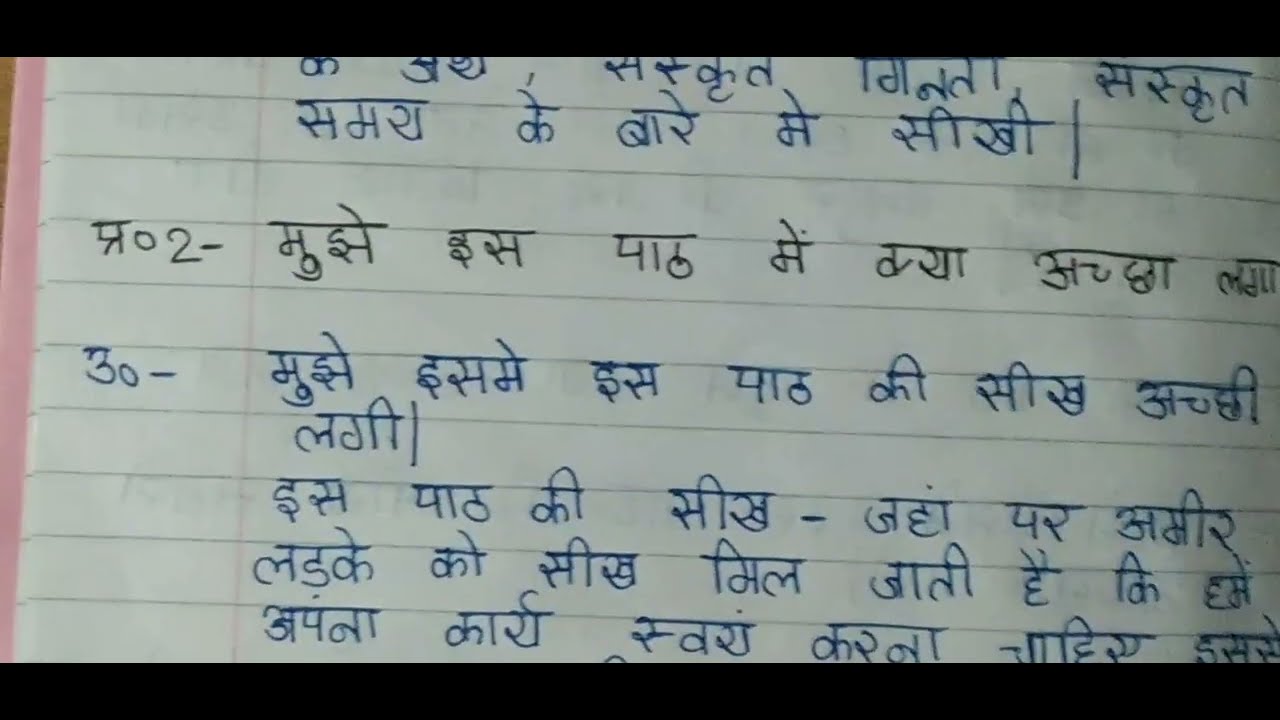 के अर्थ, संस्कृत गिनती, संस्कृत
समय के बारे मे सीखी|
प्र०2- मुझे इस पाठ में क्या अच्छा लगा
उ०- मुझे इसमे इस पाठ की सीख अच्छी
लगी|
इस पाठ की सीख - जहां पर अमीर
लड़के को सीख मिल जाती है कि हमें
अपना कार्य स्वयं करना चाहिए इससे